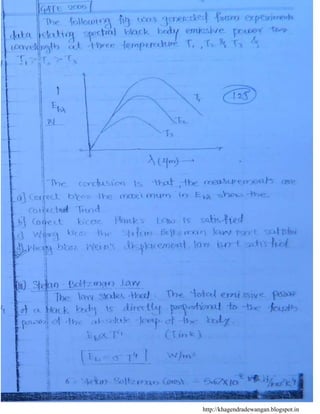 GATE 2005
The following fig was generated from experimental
data relating spectral black body emissive power to
wavelength at three temperature T1, T2 & T3 &
T1 > T2 > T3
Ebλ
T1
125
T2
T3
λ (μm) →
The conclusion is that, the measurements are
a) Correct bcos the maximum in Ebλ show the
Correct Trend
b) Correct bcos Planks Law is satisfied
c) Wrong bcos the Stefan Boltzman law isn't satisfied
d) Wrong bcos Wein's displacement law isn't satisfied
Stefan - Boltzman Law
The law states that: The total emissive power
of a black body is directly proportional to the fourth
power of the absolute temp of the body.
Eb ∝ T⁴ (T in K)
Eb = σ T⁴ W/m²
σ = Stefan Boltzman Const. = 5.67 X 10
http://khagendradewangan.blogspot.in